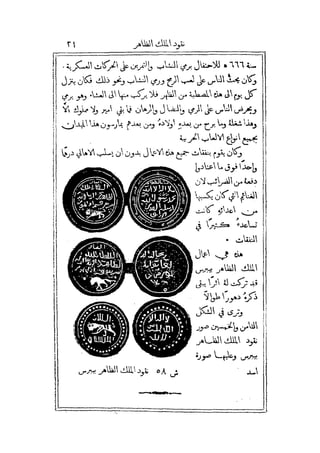 نقود الملك الظاهر ٣١
سنة ٦٦٦ ه للاحتفال برمي النشاب والتمرين على الحركات العسكرية ·
وكان يحث الناس على لعب الرمح ورمي النشاب ونحو ذلك فكان ينزل
كل يوم الى هذه المصطبة من الظهر فلا يركب منها الى العشاء وهو يرمي
ويحرض الناس على الرمي والنضال والرهان فما بقي امير ولا مملوك الاَّ
وهذا شغلهُ وما برح من بعدهِ اولادهُ ومن بعدهم يمارسون هذا الميدان
بجميع انواع الالعاب الحربية
وكان يقوم بنفقات جميع هذه الاعمال بدون ان يسلب الاهالي درهمًا
واحدًا فوق ما اعتادوا
دفعهُ من الضرائب لان
الغنائم التي كان يكسبها
من اعدائهِ كانت
تساعدهُ كثيرًا في
النفقات ·
هذه هي اعمال
الملك الظاهر بيبرس
قد تركت لهُ اثرًا يبقى
ذكرهُ دهورًا طوالاً
وترى في الشكل
الثامن والخمسين صور
نقود الملك الظاهر
بيبرس وعليها صورة
اسد
ش ٥٨ نقود الملك الظاهر بيبرس